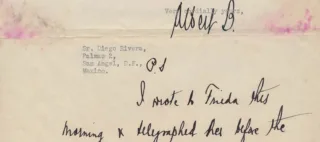 dially yours,
Albert B.
Sr. Diego Rivera,
Palmar 2,
San Angel, D.F.,
Mexico.
P.S
I wrote to Frieda this
morning & telegraphed her before the